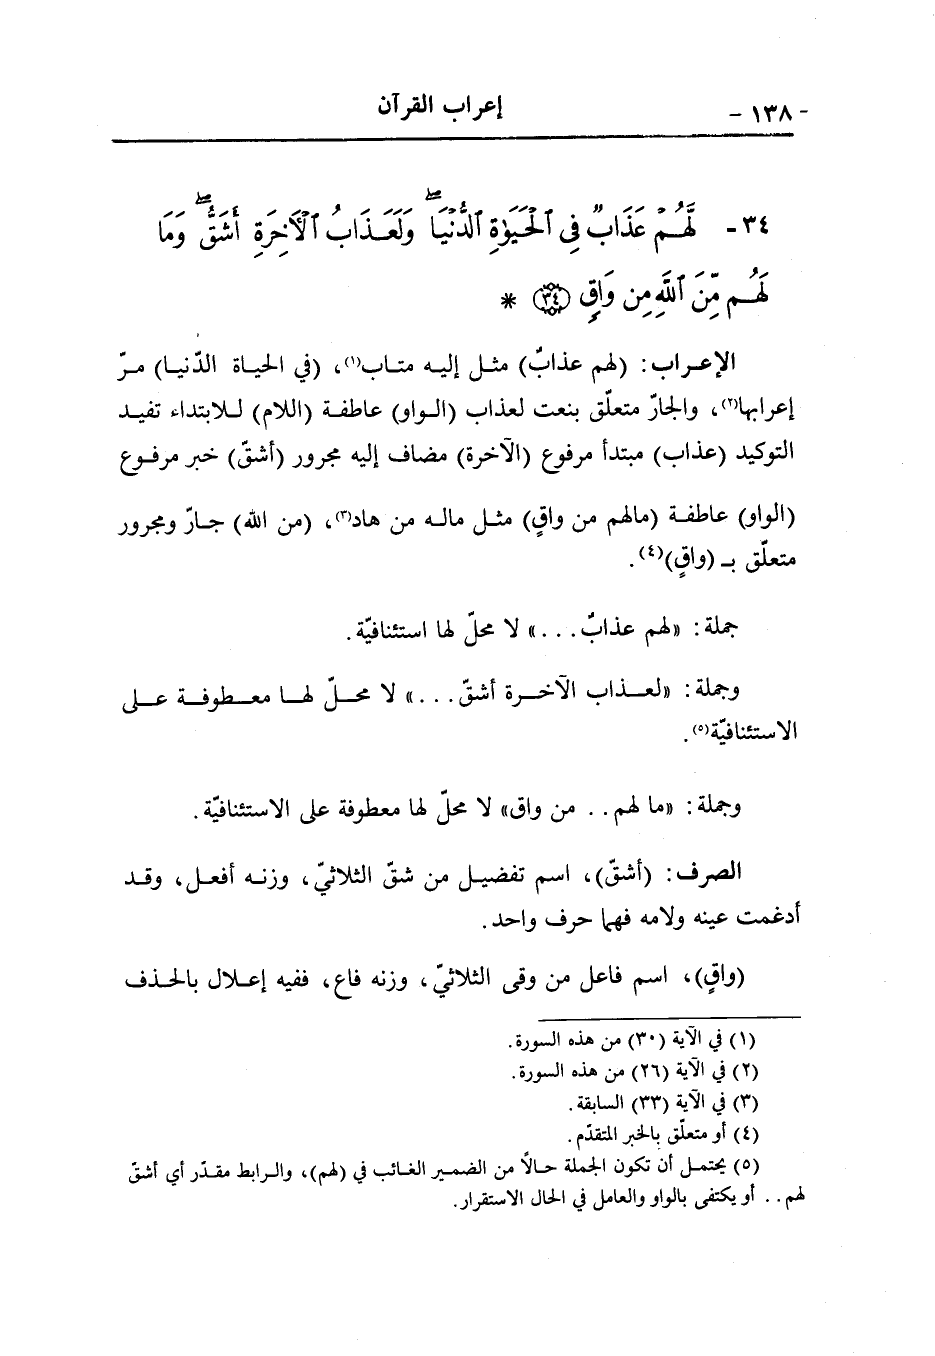 - ١٣٨ -
إعراب القرآن
٣٤- لَّهُمْ عَذَابٌ فِى ٱلْحَيَوٰةِ ٱلدُّنْيَاۖ وَلَعَذَابُ ٱلْأَخِرَةِ أَشَقُّۖ وَمَا
لَهُم مِّنَ ٱللَّهِ مِن وَاقٍ (٣٤) *
الإعراب: (لهم عذابٌ) مثل إليه متاب(١)، (في الحياة الدّنيا) مرّ
إعرابها(٢)، والجارّ متعلّق بنعت لعذاب (الواو) عاطفة (اللام) للابتداء تفيد
التوكيد (عذاب) مبتدأ مرفوع (الآخرة) مضاف إليه مجرور (أشقّ) خبر مرفوع
(الواو) عاطفة (مالهم من واقٍ) مثل ماله من هاد(٣)، (من الله) جارّ ومجرور
متعلّق بـ (واقٍ)(٤).
جملة: «لهم عذابٌ...» لا محلّ لها استئنافيّة.
وجملة: «لعذاب الآخرة أشقّ...» لا محلّ لها معطوفة على
الاستئنافيّة(٥).
وجملة: «ما لهم.. من واق» لا محلّ لها معطوفة على الاستئنافيّة.
الصرف: (أشقّ)، اسم تفضيل من شقّ الثلاثيّ، وزنه أفعل، وقد
أدغمت عينه ولامه فهما حرف واحد.
(واقٍ)، اسم فاعل من وقى الثلاثيّ، وزنه فاع، ففيه إعلال بالحذف
(١) في الآية (٣٠) من هذه السورة.
(٢) في الآية (٢٦) من هذه السورة.
(٣) في الآية (٣٣) السابقة.
(٤) أو متعلّق بالخبر المتقدّم.
(٥) يحتمل أن تكون الجملة حالاً من الضمير الغائب في (لهم)، والرابط مقدّر أي أشقّ
لهم.. أو يكتفى بالواو والعامل في الحال الاستقرار.